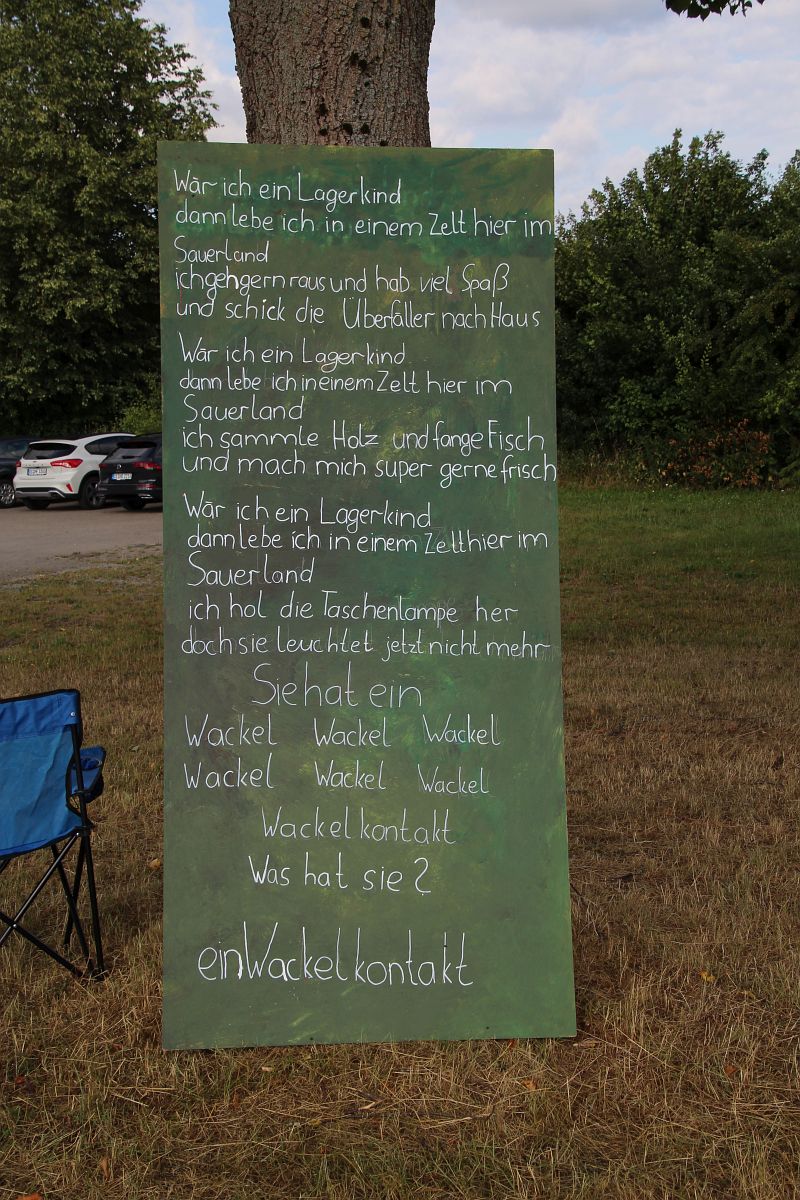 Wär ich ein Lagerkind
dann lebe ich in einem Zelt hier im
Sauerland
ich geh gern raus und hab viel Spaß
und schick die Überfäller nach Haus
Wär ich ein Lagerkind
dann lebe ich in einem Zelt hier im
Sauerland
ich sammle Holz und fange Fisch
und mach mich super gerne frisch
Wär ich ein Lagerkind
dann lebe ich in einem Zelt hier im
Sauerland
ich hol die Taschenlampe her
doch sie leuchtet jetzt nicht mehr
Sie hat ein
Wackel Wackel Wackel
Wackel Wackel Wackel
Wackelkontakt
Was hat sie?
ein Wackelkontakt